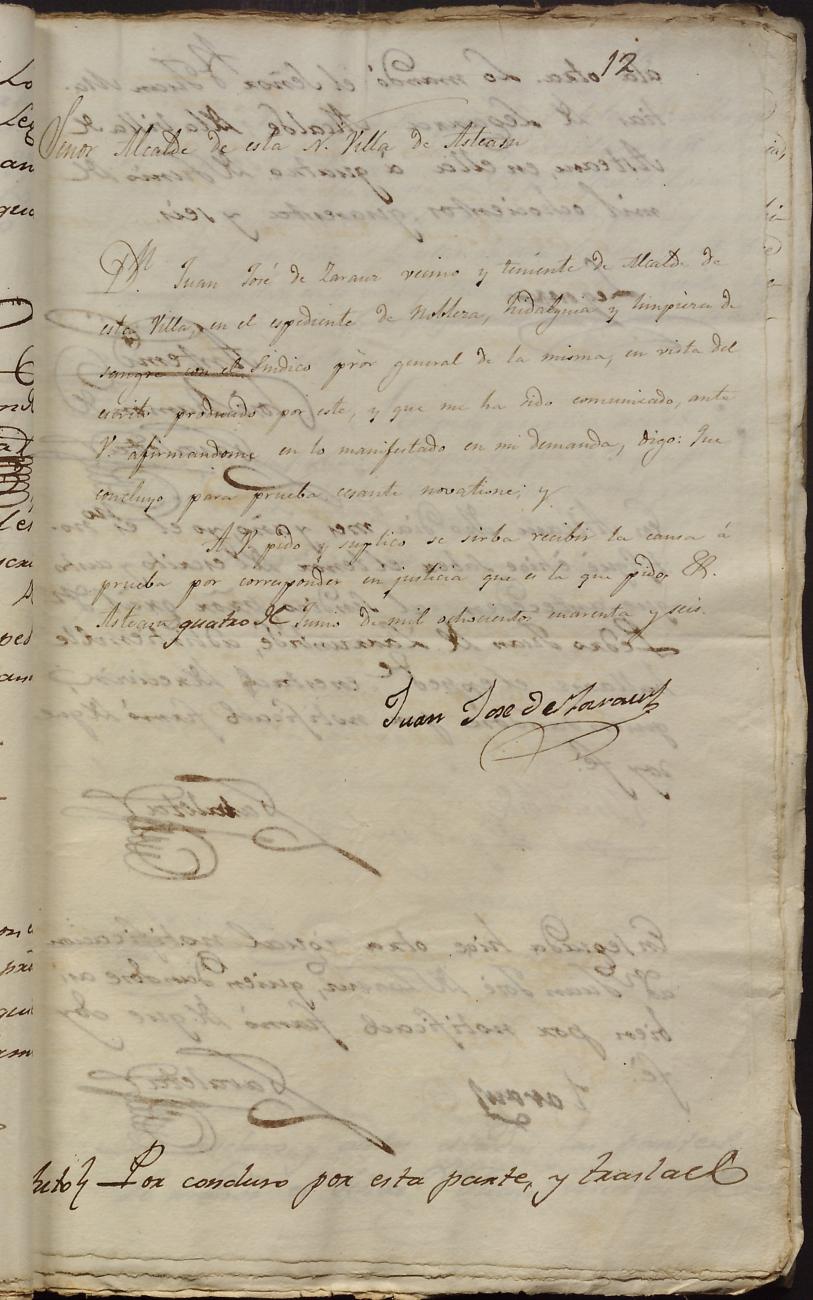 12
Señor Alcalde de esta N. Villa de Asteasu
Dn Juan José de Zarauz vecino y teniente de Alcalde de
esta Villa, en el espediente de Nobleza, hidalguia y limpieza de
sangre con el Sindico prór general de la misma, en vista del
escrito producido por este, y que me ha sido comunicado, ante
V. afirmandome en lo manifestado en mi demanda, digo: Que
concluyo para prueba cesante novatione; y
A V. pido y suplico se sirba recibir la causa á
prueba por corresponder en justicia que es la que pido, &.
Asteasu quatro de Junio de mil ochocientos cuarenta y seis.
Juan Jose de Zarauz
Auto Por concluso por esta parte, y traslado